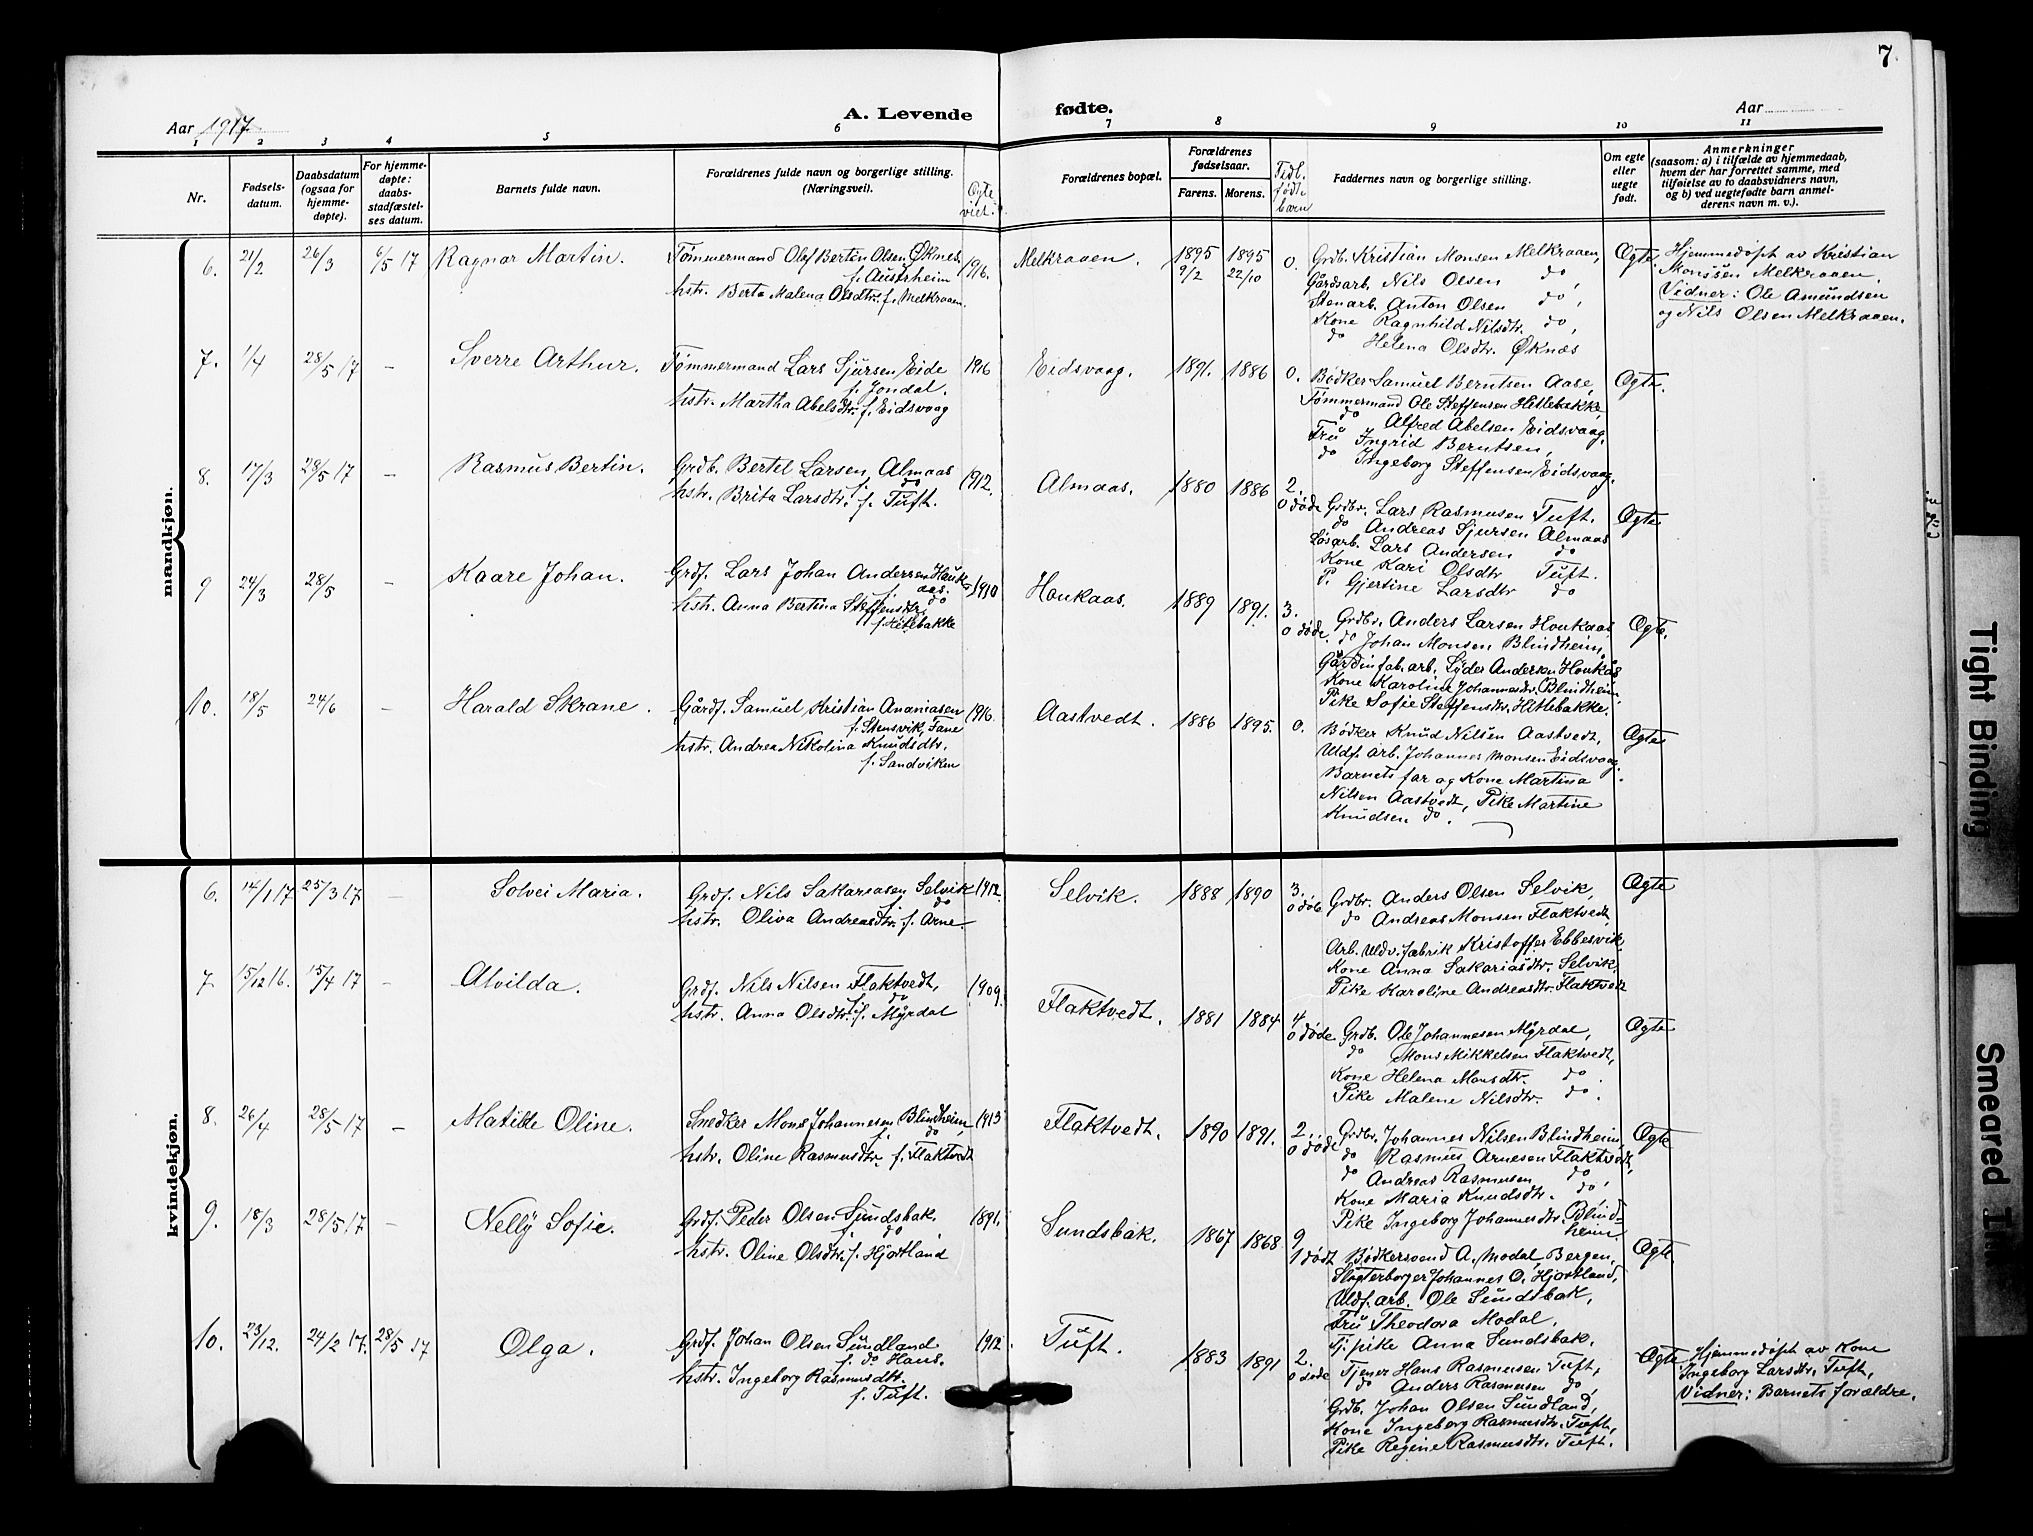 7.
Aar 1917.
A. Levende fødte.
Aar
1 2 3 4 5 6 7 8 9 10 11
Nr.
Fødsels-
datum.
Daabsdatum
(ogsaa for
hjemme-
døpte).
For hjemme-
døpte:
daabs-
stadfæstel-
ses datum.
Barnets fulde navn.
Forældrenes fulde navn og borgerlige stilling.
(Næringsvei).
Ogte
viet.
Forældrenes bopæl.
Forældrenes
fødselsaar.
Farens. Morens.
Tidl.
fødte
barn
Faddernes navn og borgerlige stilling.
Om egte
eller
uegte
født.
Anmerkninger
(saasom: a) i tilfælde av hjemmedaab,
hvem der har forrettet samme, med
tilføielse av to daabsvidners navn,
og b) ved uegtefødte barn anmel-
derens navn m. v.).
mandkjøn.
6. 21/2 26/3 6/5 17 Ragnar Martin.
Tømmermand Olaf Bertin Olsen Øknes.
f. Austrheim
hstr. Berta Malena Olsdtr. f. Melkraaen.
1916.
Melkraaen. 1895 9/2 1895 22/10 0.
Grdb. Kristian Monsen Melkraaen,
Gårdsarb. Nils Olsen do,
Stenarb. Anton Olsen do,
Kone Ragnhild Nilsdtr. do,
do Helena Olsdtr. Øknæs
Ogte.
Hjemmedøpt av Kristian
Monssen Melkraaen,
Vidner: Ole Amundsen
og Nils Olsen Melkraaen.
7. 1/4 28/5 17 – Sverre Arthur.
Tømmermand Lars Sjursen Eide
f. Jondal.
hstr. Martha Abelsdtr. f. Eidsvaag
1916
Eidsvaag. 1891. 1886 0.
Bødker Samuel Berntsen Aase,
Tømmermand Ole Steffensen Hitlebakke,
do Alfred Abelsen Eidsvaag,
Fru Ingrid Berntsen,
do Ingeborg Steffensen Eidsvaag.
Ogte.
8. 17/3 28/5 17 – Rasmus Bertin.
Grdb. Bertel Larsen Almaas
f. do
hstr. Brita Larsdtr. f. Tuft.
1912.
Almaas. 1880 1886 2.
0 døde
Grdbr. Lars Rasmusen Tuft.
do Andreas Sjursen Almaas
Løsarb. Lars Andersen do
Kone Kari Olsdtr Tuft.
P. Gjertine Larsdtr do
Ogte
9 24/3 28/5 – Kaare Johan.
Grdf. Lars Johan Andersen Hauk-
aas.
f. do
hstr. Anna Bertina Steffensdtr.
f. Hitlebakke
1910
Houkaas. 1889 1891. 3.
0 døde.
Grdbr. Anders Larsen Houkaas
do Johan Monsen Blindheim,
Gårdinfab. arb. Lyder Andersen Houkås
Kone Karoline Johannesdtr. Blindheim,
Pike Sofie Steffensdtr. Hitlebakke.
Ogte.
10. 18/5 24/6 – Harald Skrane.
Gårdf. Samuel Kristian Ananiasen
f. Stensvik, Fane
hstr. Andrea Nikolina Knudsdtr.
f. Sandviken
1916.
Aastvedt. 1886 1895. 0.
Bødker Knud Nilsen Aastvedt,
Uldf. arb. Johannes Monsen Eidsvaag.
Barnets far og Kone Martina
Nilsen Aastvedt, Pike Martine
Knudsen do.
Ogte
kvindekjøn.
6. 14/1 17 25/3 17 – Solvei Maria.
Grdf. Nils Sakariasen Selvik
f. do
hstr. Oliva Andreasdtr. f. Arne.
1912.
Selvik. 1888 1890 3.
0 døde
Grdbr. Anders Olsen Selvik,
do Andreas Monsen Flaktvedt,
Arb. Uldv. fabrik Kristoffer Ebbesvik
Kone Anna Sakariasdtr. Selvik,
Pike Karoline Andreasdtr. Flaktvedt
Ogte
7 15/12 16. 15/4 17 – Alvilda.
Grdf. Nils Nilsen Flaktvedt,
f. do
hstr. Anna Olsdtr. f. Myrdal
1909.
Flaktvedt. 1881 1884 4
0 døde
Grdb. Ole Johannesen Myrdal,
do Mons Mikkelsen Flaktvedt,
Kone Helena Monsdtr. do.
Pike Malene Nilsdtr. do.
Ogte
8. 26/4 28/5 17 – Matilde Oline.
Snedker Mons Johannesen Blindheim
f. do
hstr. Oline Rasmusdtr. f. Flaktvedt
1913
Flaktvedt. 1890 1891. 2..
0 døde
Grdbr. Johannes Nilsen Blindheim,
do Rasmus Arnesen Flaktvedt,
do Andreas Rasmusen do,
Kone Maria Knudsdtr. do,
Pike Ingeborg Johannesdtr. Blind-
heim
Ogte
9. 18/3 28/5. 17 – Nelly Sofie.
Grdf. Peder Olsen Sundsbak.
f. do
hstr. Oline Olsdtr. f. Hjortland
1891.
Sundsbak. 1867 1868 9
1 dødt
Bødkersvend A. Modal, Bergen,
Slagterborger Johannes O. Hjortland,
Uldf. arb. Ole Sundsbak,
Fru Theodora Modal,
Tj. pike Anna Sundsbak.
Ogte
10. 23/12. 24/2 17. 28/5 17 Olga.
Grdf. Johan Olsen Sundland
f. do Haus.
hstr. Ingeborg Rasmusdtr.
f. Tuft.
1912.
Tuft. 1883 1891 2.
0 døde
Tjener Hans Rasmusen Tuft,
do Anders Rasmusen do,
Grdb. Johan Olsen Sundland,
Kone Ingeborg Rasmusdtr. Tuft,
Pike Regine Rasmusdtr. Tuft.
Ogte.
Hjemmedøpt av Kone
Ingeborg Larsdtr. Tuft,
Vidner: Barnets forældre.
Tight Binding
Smeared